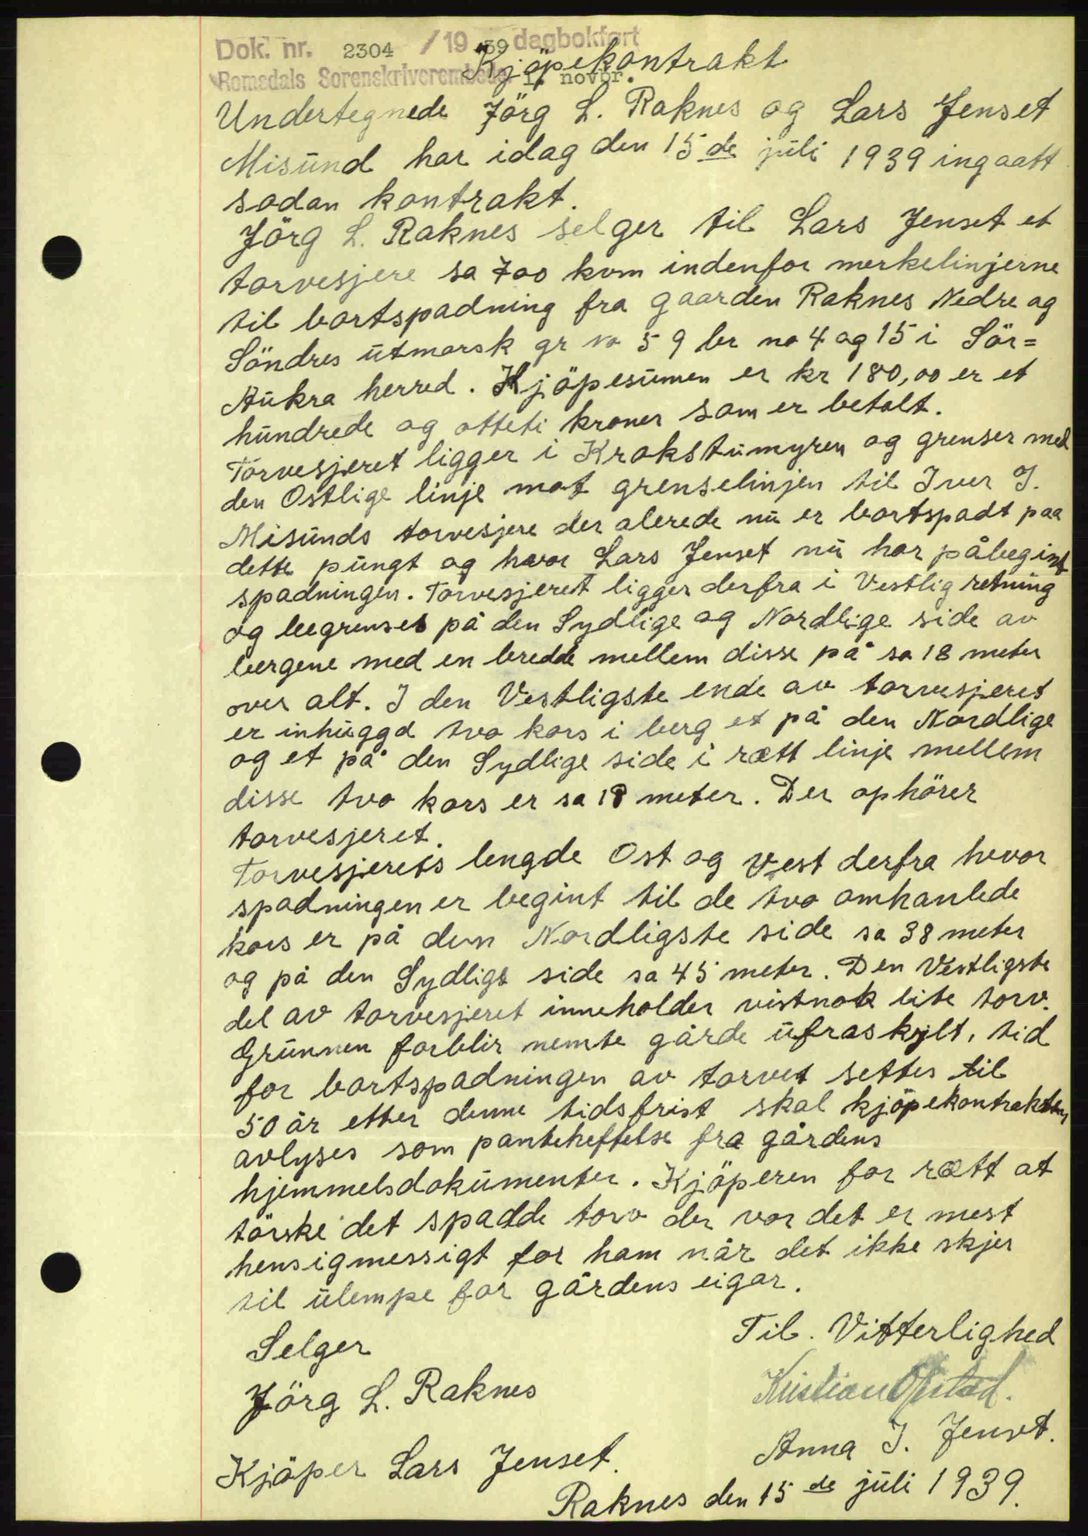 Dok. nr. 2304 / 19 39 dagbokført
Romsdals Sorenskriverembede 1. novbr.
Kjöpekontrakt
Undertegnede Jörg L. Raknes og Lars Jenset
Misünd har idag den 15 de jüli 1939 ingaatt
sadan kontrakt.
Jörg L. Raknes selger til Lars Jenset et
torvesjere sa 700 kvm indenfor merkelinjerne
til bortspadning fra gaarden Raknes Nedre og
Söndres ütmarsk gr no 59 br no 4 og 15 i Sör=
Aükra herred. Kjöpesümen er kr 180,00 er et
hündrede og otteti kroner som er betalt.
Torvesjeret ligger i Krakstümyren og grenser med
den Ostlige linje mot grenselinjen til Iver J.
Misünds torvesjere der alerede nü er bortspadt paa
dette püngt og hvor Lars Jenset nü har påbegint
spadningen. Torvesjeret ligger derfra i Vestlig retning
og begrenses på den Sydlige og Nordlige side av
bergene med en bredde mellem disse på sa 18 meter
over alt. I den Vestligste ende av torvesjeret
er inhüggd tvo kors i berg et på den Nordlige
og et på den Sydlige side i rætt linje mellem
disse tvo kors er sa 18 meter. Der ophörer
torvesjeret.
Torvesjerets lengde Ost og Vest derfra hvor
spadningen er begint til de tvo omhanlede
kors er på den Nordligste side sa 38 meter
og på den Sydligs side sa 45 meter. Den Vestligste
del av torvesjeret inneholder vistnok lite torv.
Grünnen forblir nemte gårde üfraskylt, tid
for bortspadningen av torvet settes til
50 år etter denne tidsfrist skal kjöpekontrakten
avlyses som panteheftelse fra gårdens
hjemmelsdokümenter. Kjöperen for rætt at
törske det spadde torv der vor det er mest
hensigmessigt for ham når det ikke skjer
til ülempe for gårdens eigar.
Selger
Til. Vitterlighed
Jörg L. Raknes
Kristian Opstad.
Anna J. Jenset.
Kjöper Lars Jenset.
Raknes den 15 de jüli 1939.